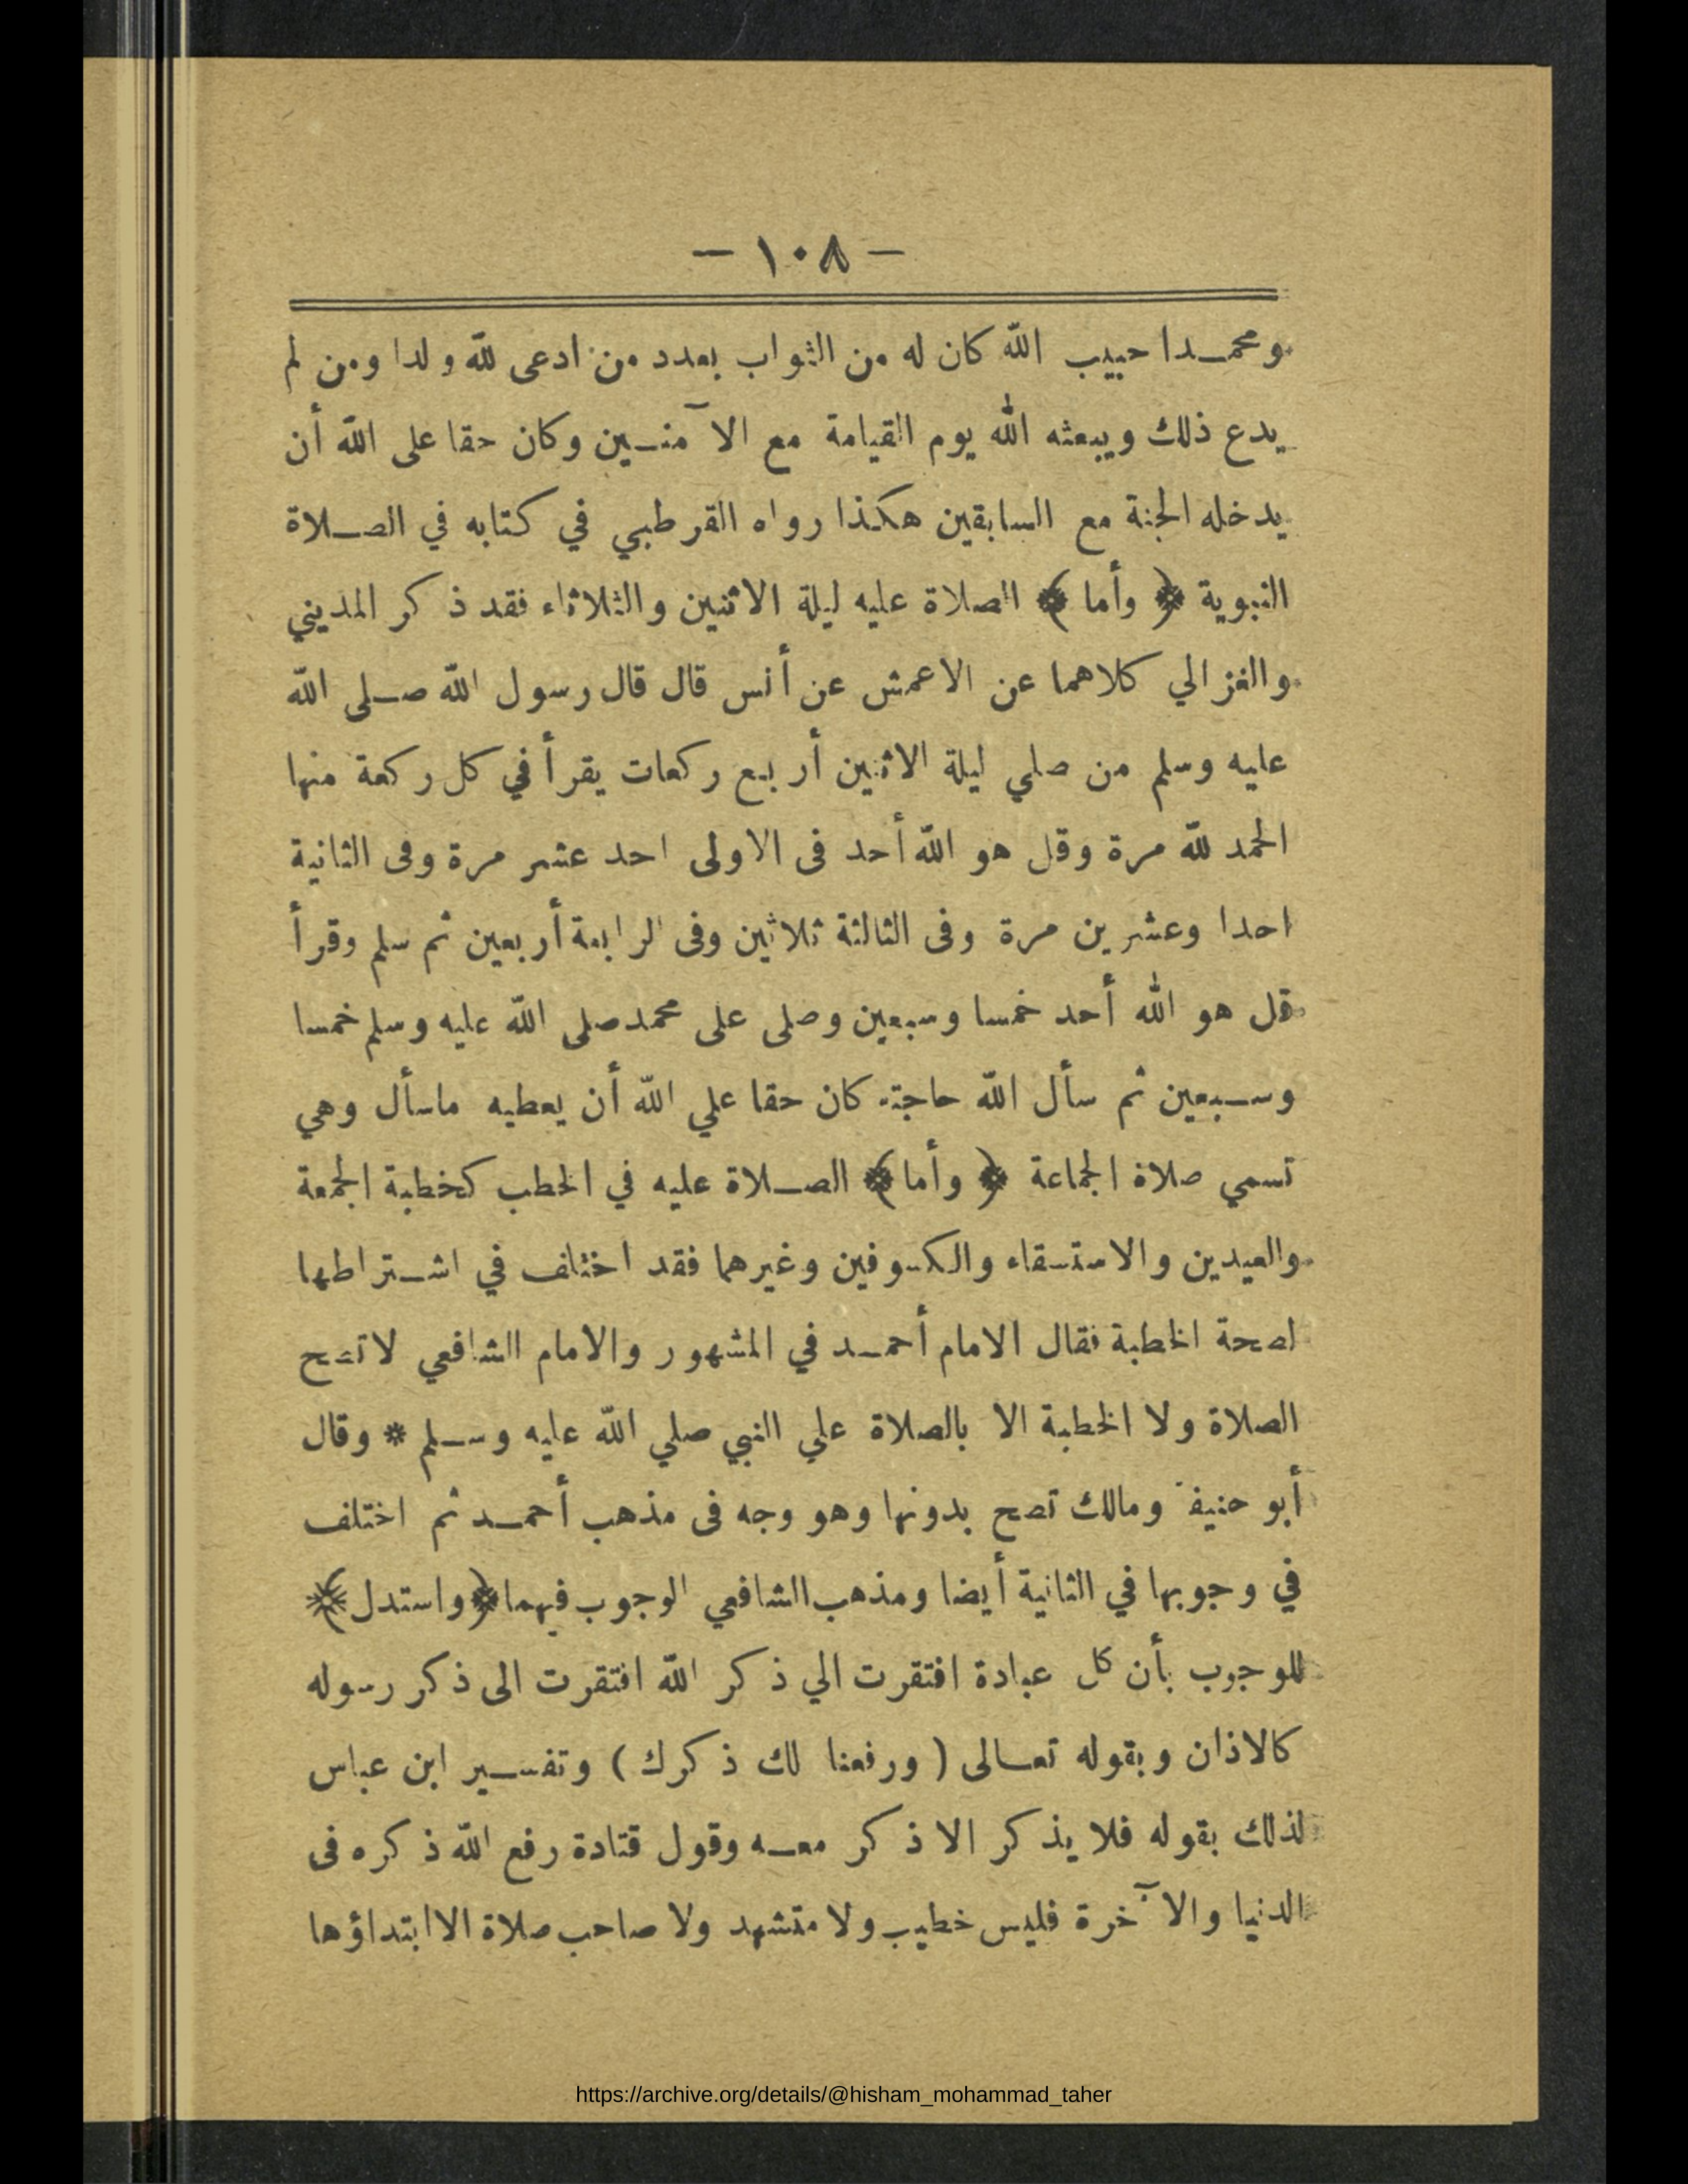 — ١٠٨ —
ومحمدا حبيب الله كان له من الثواب بعدد من ادعى لله ولدا ومن لم
يدع ذلك ويبعثه الله يوم القيامة مع الآمنين وكان حقا على الله أن
يدخله الجنة مع السابقين هكذا رواه القرطبي في كتابه في الصلاة
النبوية ﴿ وأما ﴾ الصلاة عليه ليلة الاثنين والثلاثاء فقد ذكر المديني
والغزالي كلاهما عن الاعمش عن أنس قال قال رسول الله صلى الله
عليه وسلم من صلي ليلة الاثنين أربع ركعات يقرأ في كل ركعة منها
الحمد لله مرة وقل هو الله أحد فى الاولى احد عشر مرة وفى الثانية
احدا وعشرين مرة وفى الثالثة ثلاثين وفى الرابعة أربعين ثم سلم وقرأ
قل هو الله أحد خمسا وسبعين وصلى على محمد صلى الله عليه وسلم خمسا
وسبعين ثم سأل الله حاجته كان حقا علي الله أن يعطيه ماسأل وهي
تسمي صلاة الجماعة ﴿ وأما ﴾ الصلاة عليه في الخطب كخطبة الجمعة
والعيدين والاستسقاء والكسوفين وغيرهما فقد اختلف في اشتراطها
لصحة الخطبة فقال الامام أحمد في المشهور والامام الشافعي لاتصح
الصلاة ولا الخطبة الا بالصلاة علي النبي صلي الله عليه وسلم * وقال
أبو حنيفة ومالك تصح بدونها وهو وجه فى مذهب أحمد ثم اختلف
في وجوبها في الثانية أيضا ومذهب الشافعي الوجوب فيهما ﴿ واستدل ﴾
للوجوب بأن كل عبادة افتقرت الي ذكر الله افتقرت الى ذكر رسوله
كالاذان وبقوله تعالى ( ورفعنا لك ذكرك ) وتفسير ابن عباس
لذلك بقوله فلا يذكر الا ذكر معه وقول قتادة رفع الله ذكره فى
الدنيا والآخرة فليس خطيب ولا متشهد ولا صاحب صلاة الا ابتداؤها
https://archive.org/details/@hisham_mohammad_taher